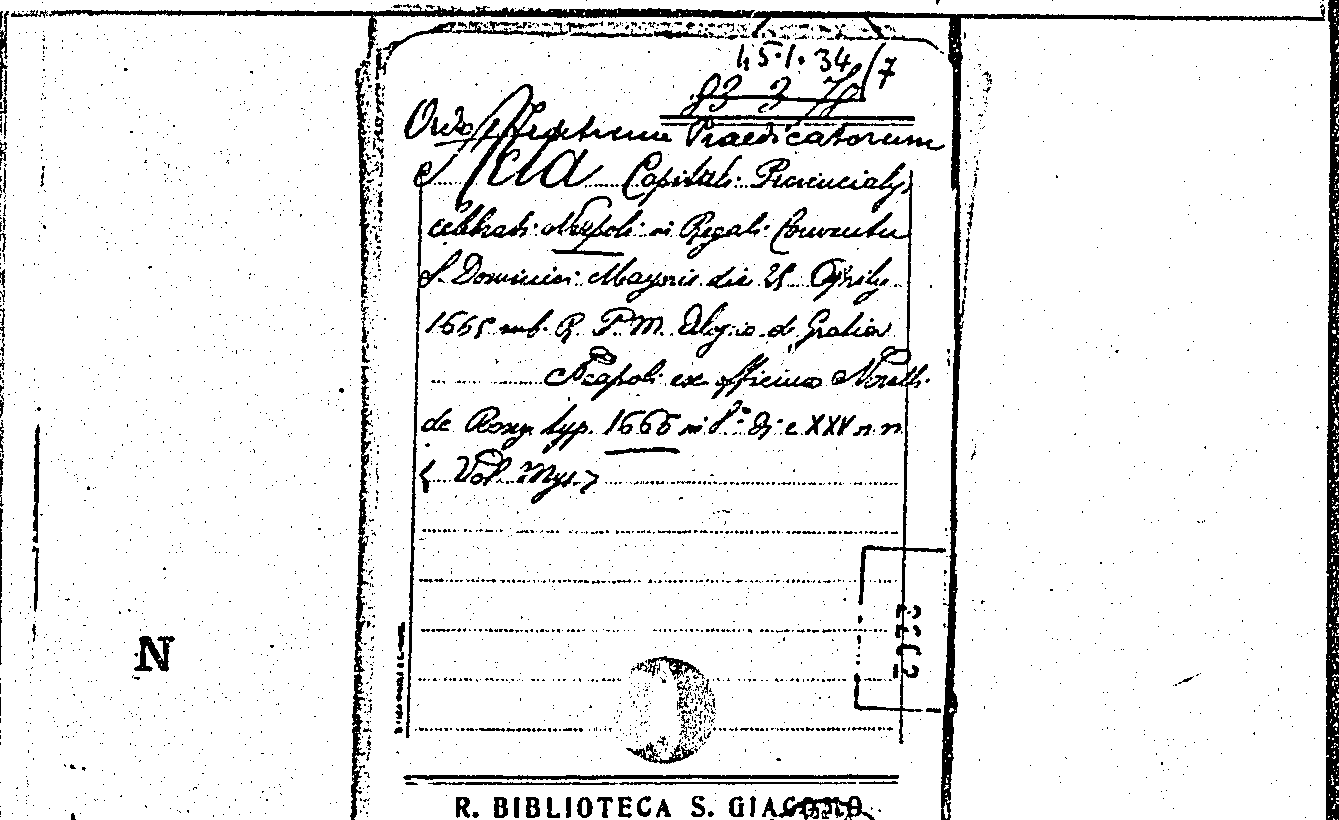 45.1.34/7
83 3 70
Ordo Fratrum Praedicatorum
Acta Capituli Provincialis
celebrati Neapoli in Regali Conventu
S. Dominici Mayoris die 25 Aprilis
1665 sub R. P. M. de Gratia
Neapoli ex officina Novelli
de typ. 1666 in 8º di c XXV n n
N
R. BIBLIOTECA S. GIACOMO